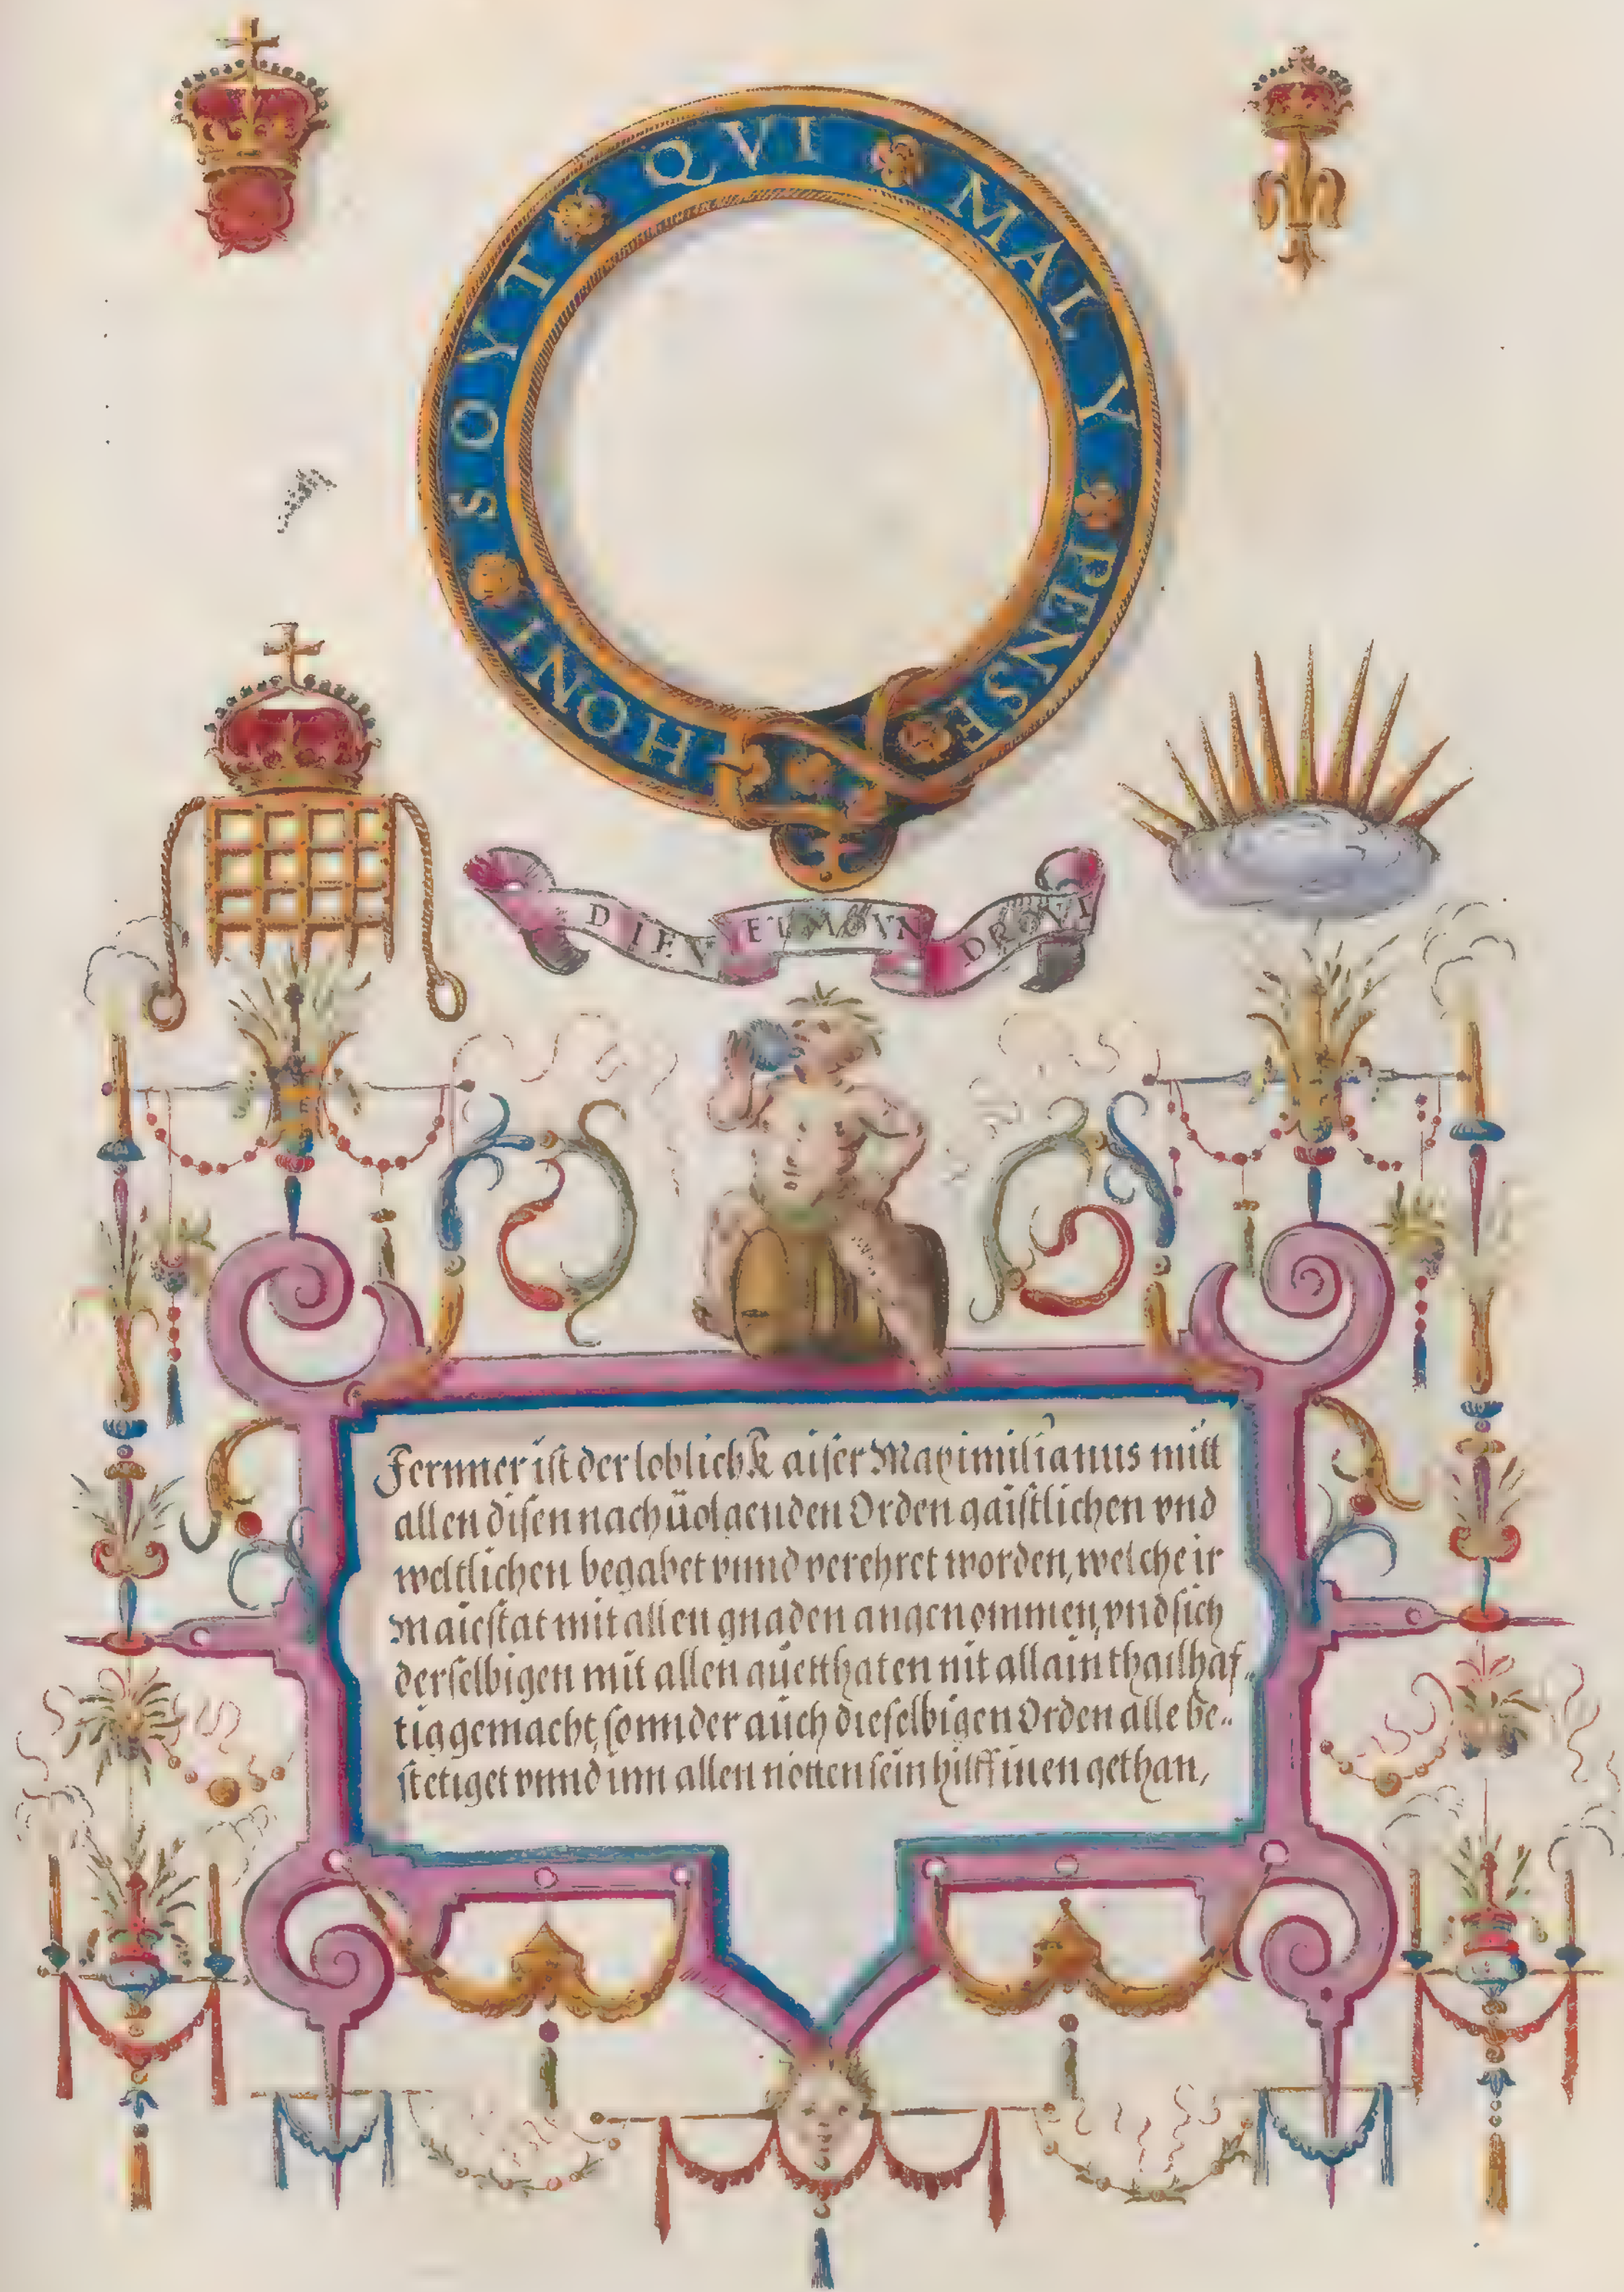 HONI SOYT QVI MAL Y PENSE
DIEV ET MOVN DROYT
Fernner ist der loblich Kaiser Maximilianus mitt
allen disen nachüolgenden Orden gaistlichen vnd
weltlichen begabet vnnd verehret worden, welche ir
Maiestat mit allen gnaden angenommen, vnd sich
derselbigen mit allen güetthaten nit allain thailhaf„
tig gemacht, sonnder aüch dieselbigen Orden alle be„
stetiget vnnd inn allen nötten sein hilff inen gethan,